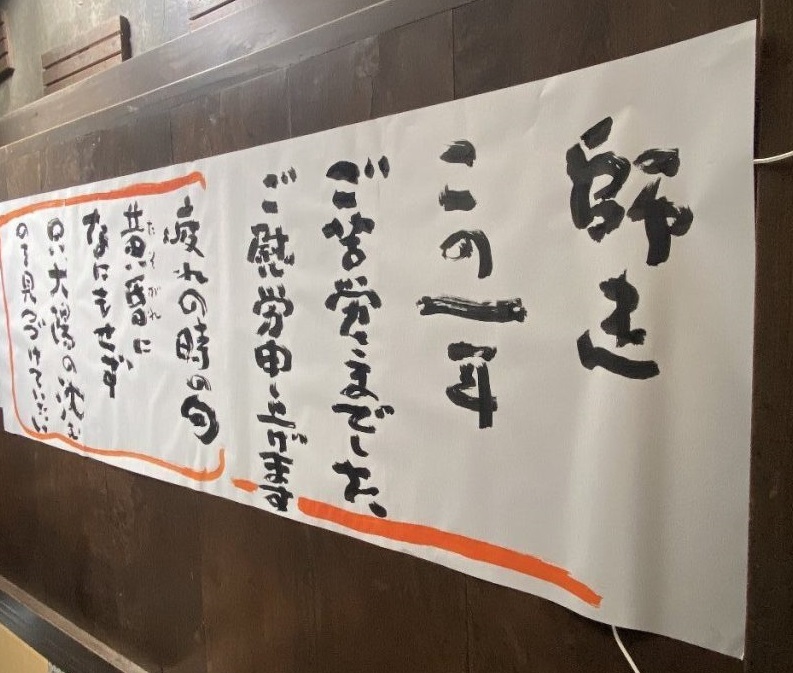 師走
この1年
ご苦労さまでした。
ご慰労申し上げます
疲れの時の句
黄昏に
たそがれ
なにもせず
只太陽の沈む
のを見つづけていたい